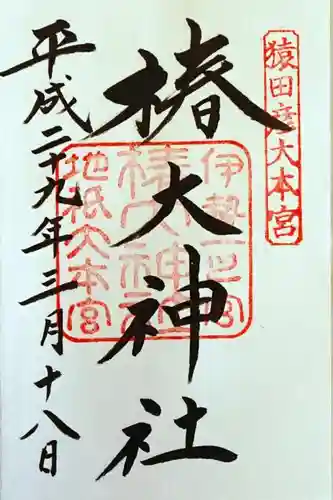 猿田彦大本宮
伊勢一之宮
椿大神社
地祇大本宮
椿大神社
平成二十九年三月十八日